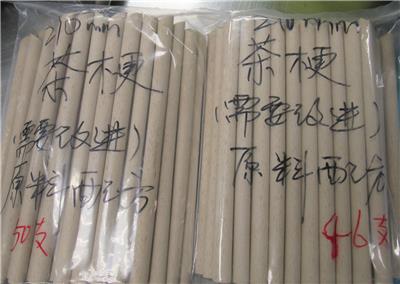 210mm
茶梗
(需要改进)
原料配方
50支
210mm
茶梗
(需要改进)
原料配方
46支